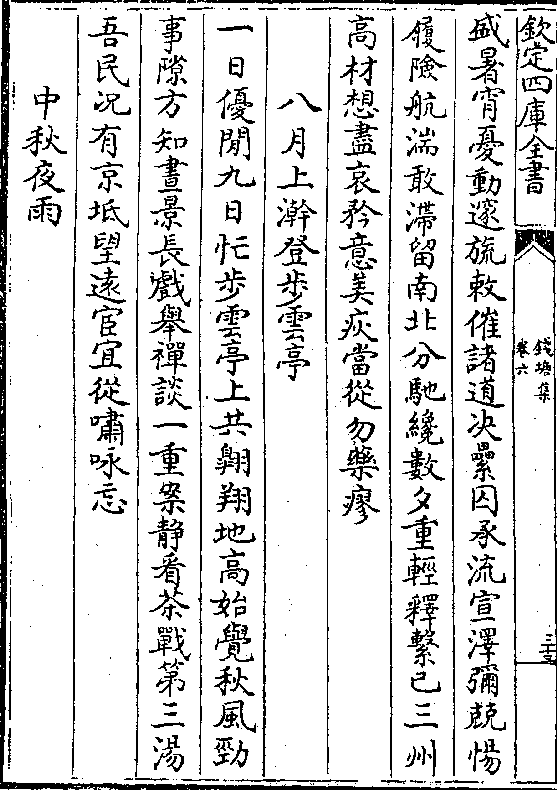 欽定四庫全書
錢塘集
卷六
盛暑宵憂動邃旒敕催諸道決纍囚承流宣澤彌兢惕
履險航湍敢滯留南北分馳纔數夕重輕釋繫已三州
高材想盡哀矜意美疢當從勿藥瘳
八月上澣登步雲亭
一日優閒九日忙步雲亭上共翺翔地高始覺秋風勁
事隙方知晝景長戲舉禪談一重案静看茶戰第三湯
吾民况有京坻望遠宦宜從嘯咏忘
中秋夜雨